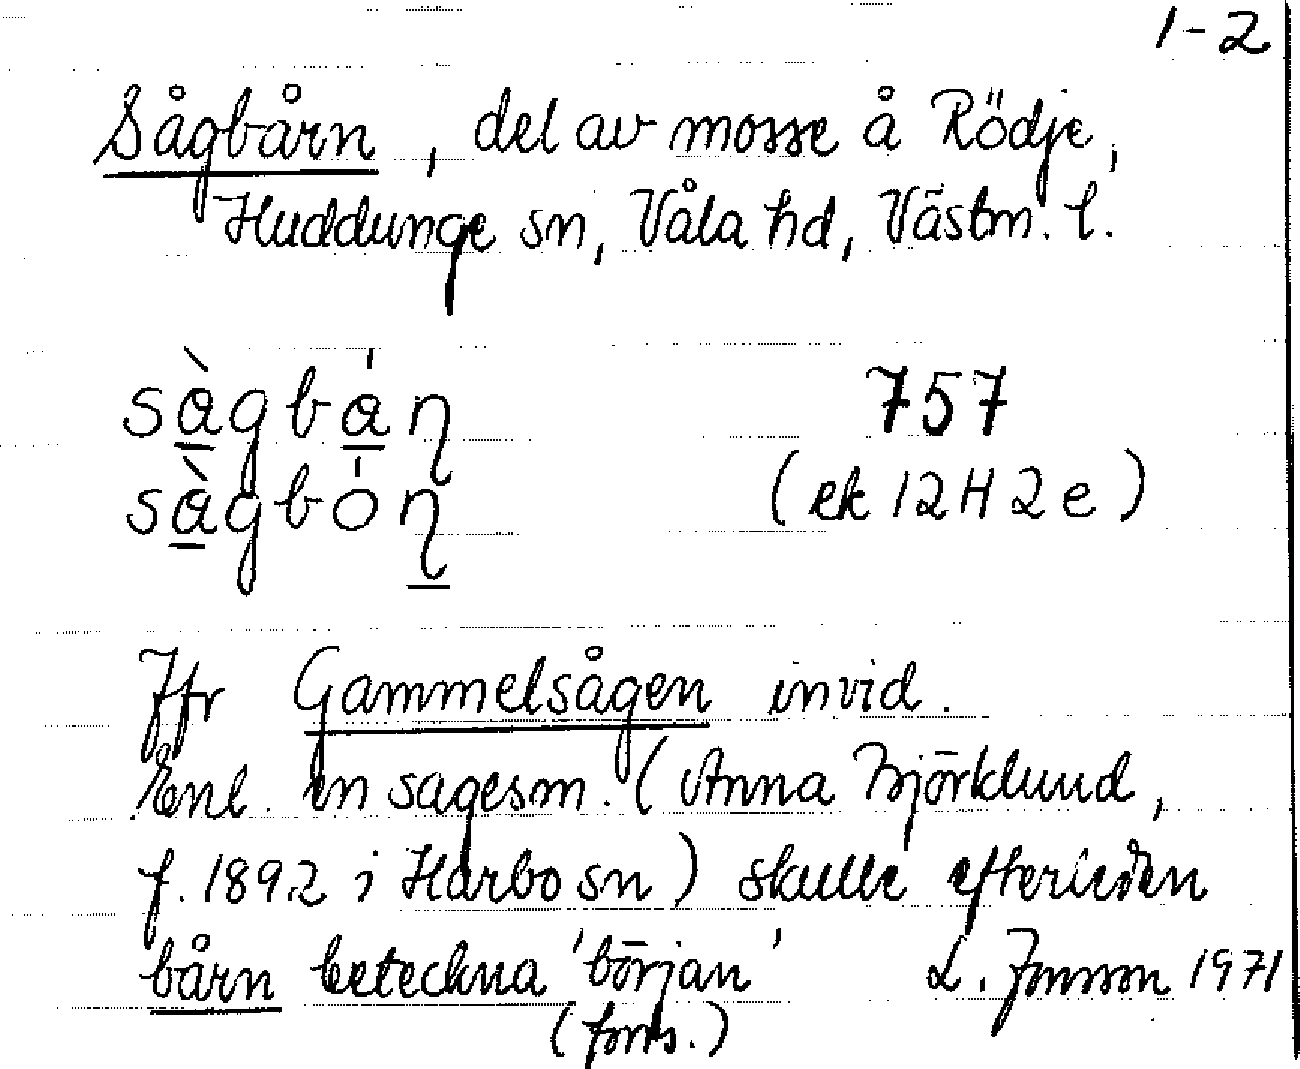 1-2
Sågbårn, del av mosse å Rödje,
Huddunge sn, Våla hd, Västm. l.
sàgbáɳ 757
sàgbóɳ (ek 12H2e)
Jfr Gammelsågen invid.
Enl. en sagesm. (Anna Björklund,
f. 1892 i Harbo sn) skulle efterleden
bårn beteckna 'början' L. Jonsson 1971
(forts.)